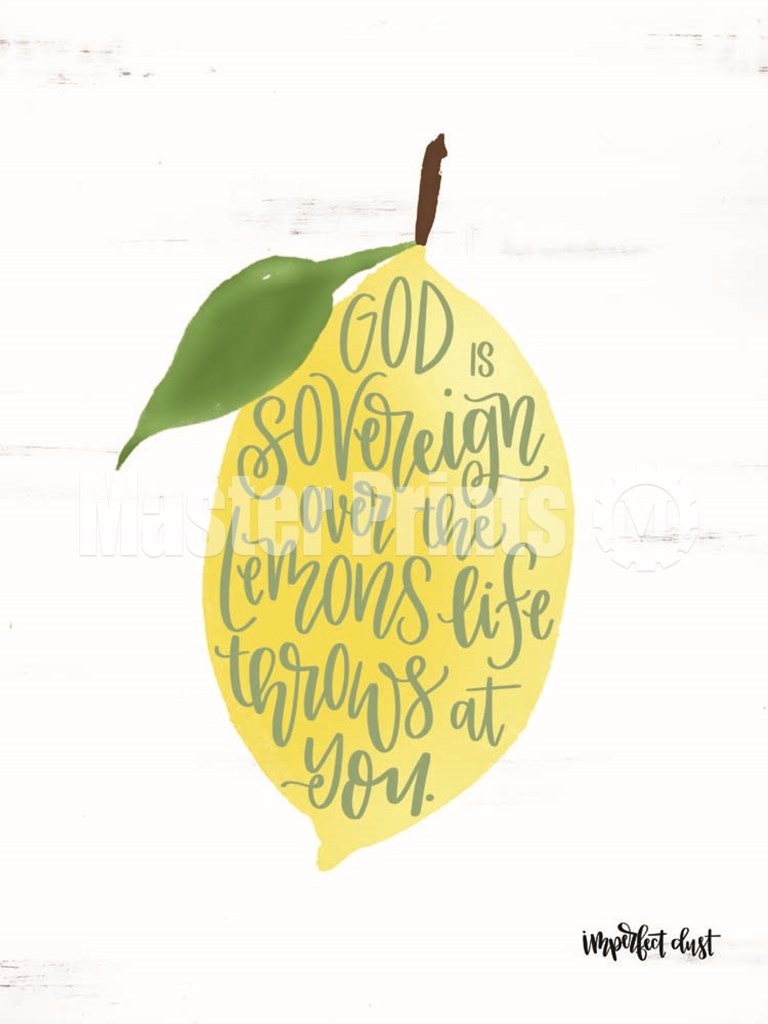 GOD is
sovereign
over the
lemons life
throws at
you.
Master Prints M
imperfect dust